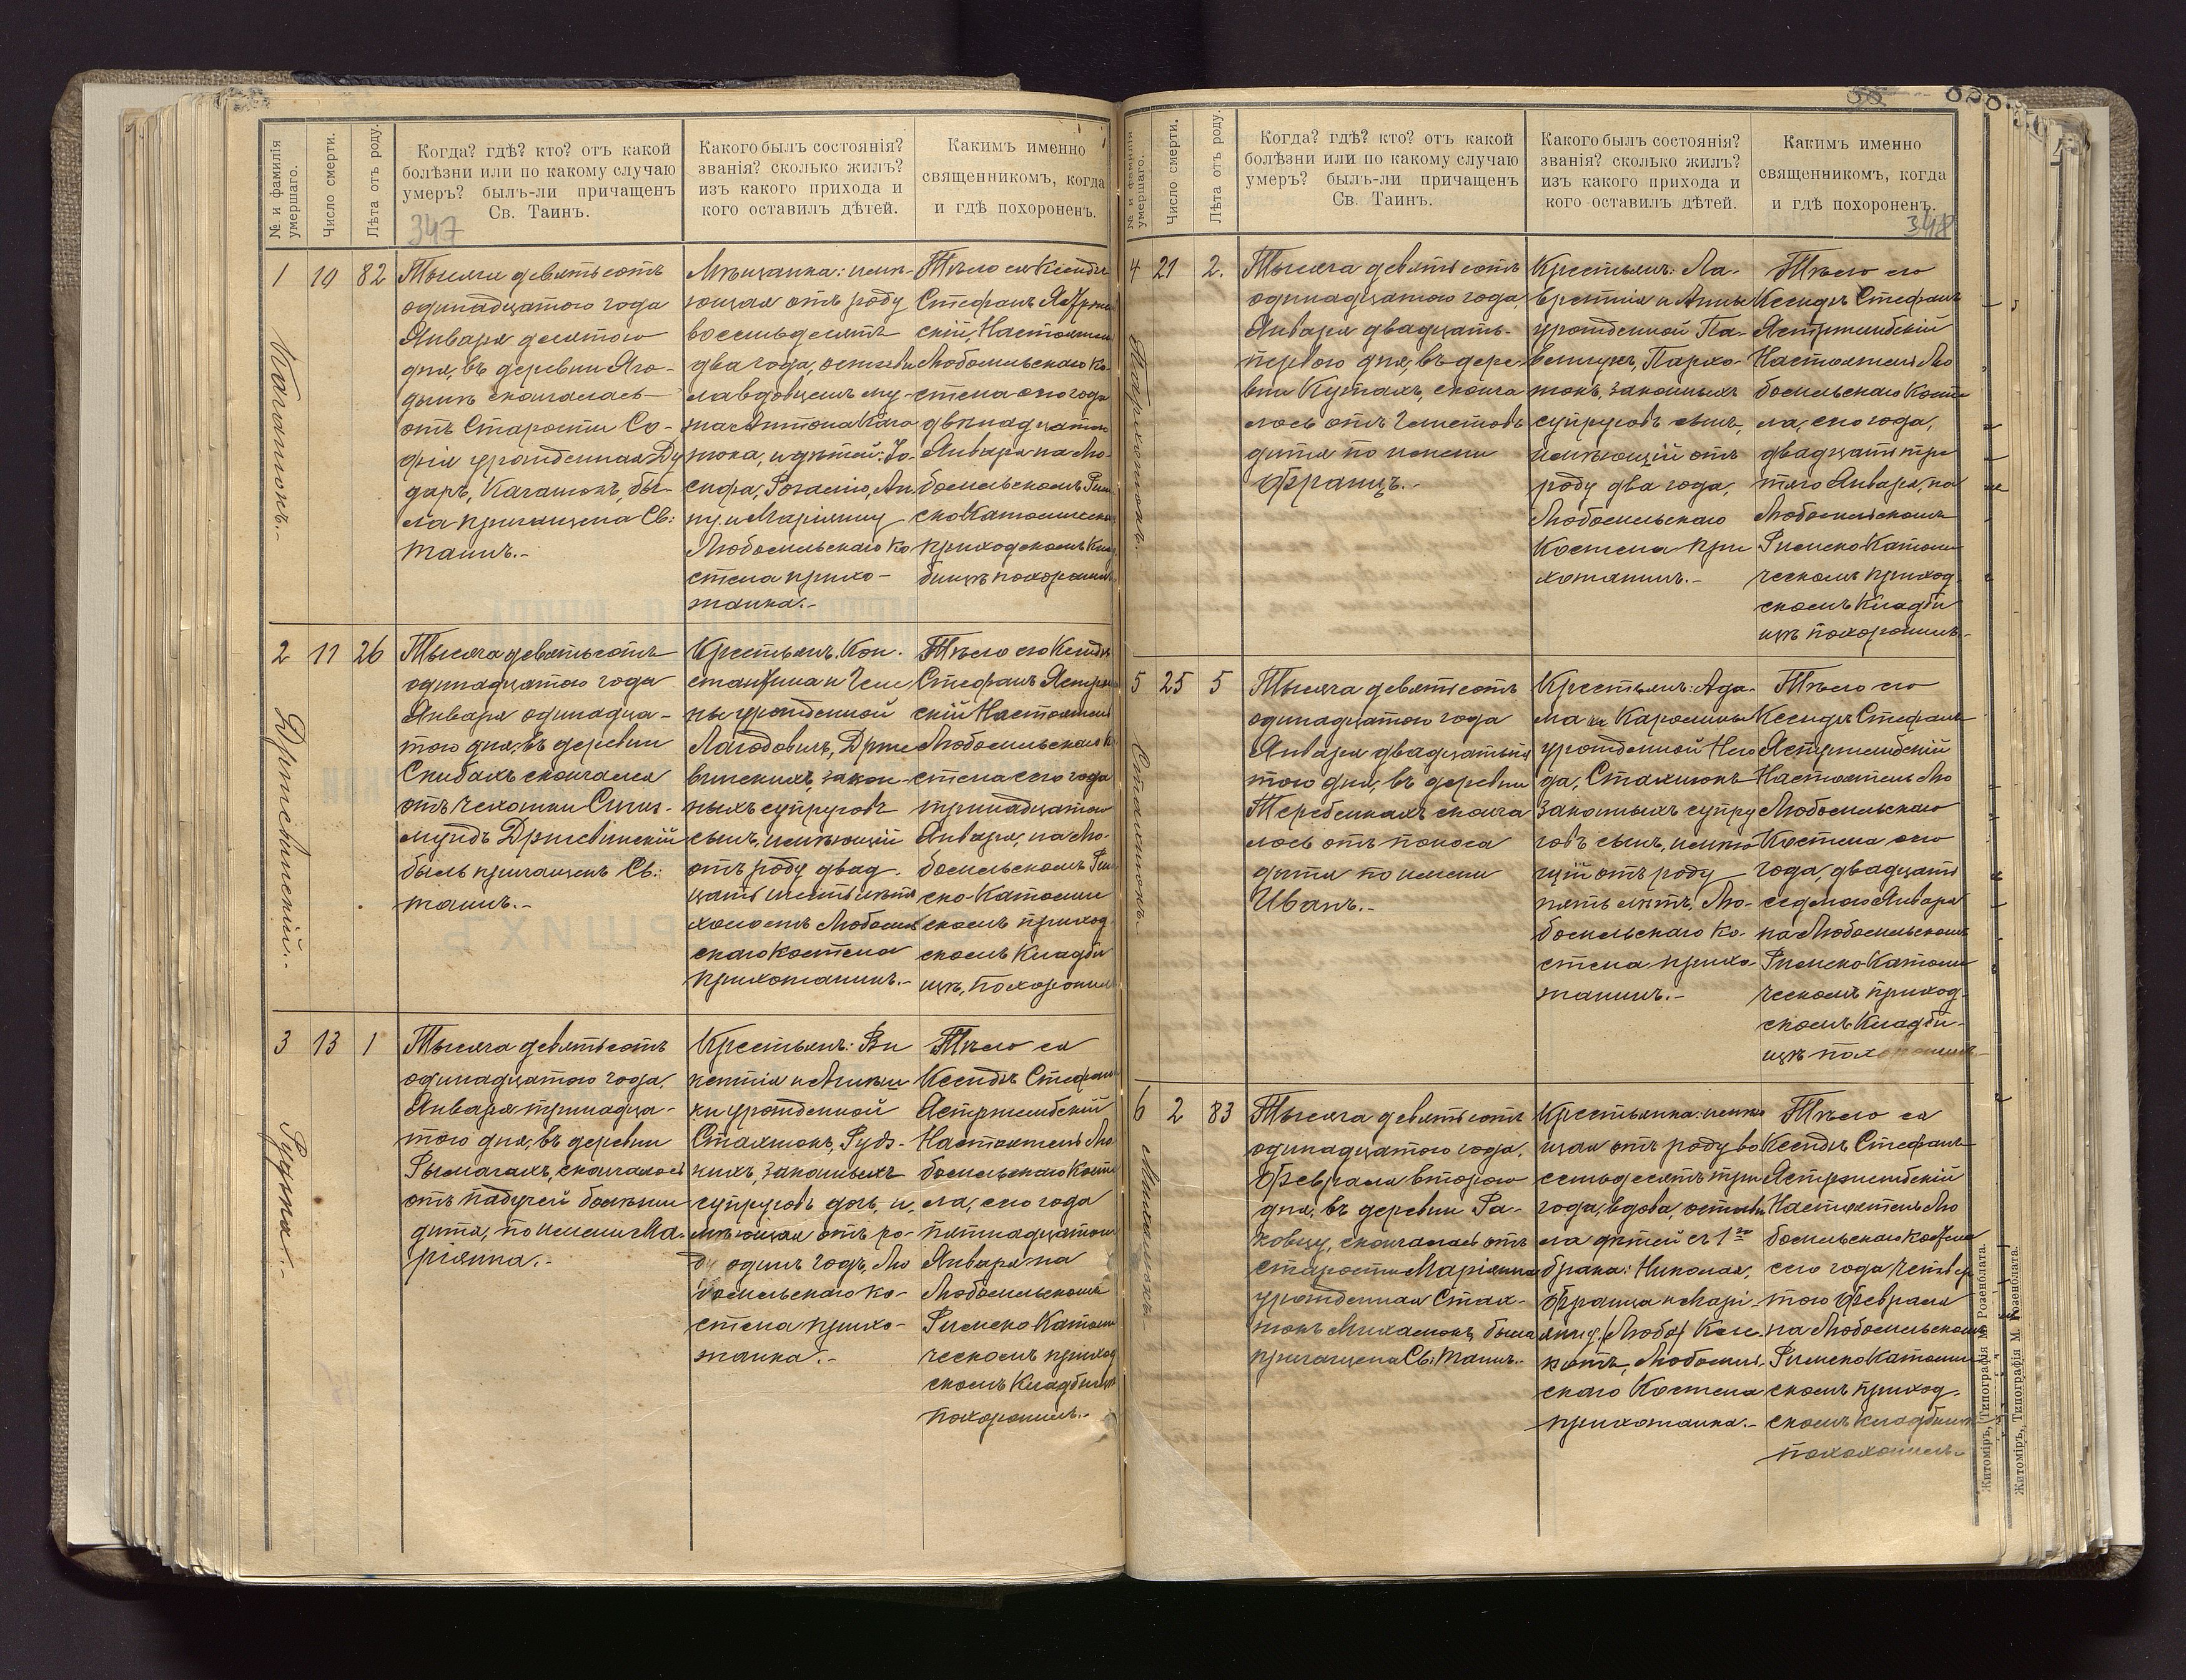 № и фамилія умершаго.
Число смерти.
Лѣта отъ роду.
Когда? гдѣ? кто? отъ какой
болѣзни или по какому случаю
умеръ? былъ-ли причащенъ
Св. Таинъ.
Какого былъ состоянія?
званія? сколько жилъ?
изъ какого прихода и
кого оставилъ дѣтей.
Какимъ именно
священникомъ, когда
и гдѣ похороненъ.
347
1
10
82
Тысяча девятьсотъ
одинадцатого года
Января десятого
дня, въ деревни Яго-
дынѣ скончалась
отъ Старости Со-
фія урожденная Ду
даръ, Качатокъ, бы-
ла причащена Св:
таинъ.-
Мѣщанка: имѣ-
ющая отъ роду
восемьдесятъ
два года, остави
ла вдовцемъ му-
жа Антона Кача
тока, и дѣтей: Іо-
сифа, Розалію, Ан-
ну и Маріянну
Любомльскаго Ко
стела прихо-
жанка.-
Тѣло ея Ксендзъ
Стефанъ
скій, Настоятель
Любомльскаго Ко-
стела сего года
двѣнадцатого
Января на Лю-
бомльскомъ Рим
ско Католическо
приходскомъ Клад
бищѣ похоронилъ
2
11
26
Тысяча девятьсотъ
одинадцатого года
Января одинадца-
того дня, въ деревни
Скибахъ скончался
отъ чахотки Сигиз-
мундъ Држевинскій
былъ причащенъ Св:
таинъ.-
Држевинскій.-
Крестьянъ: Кон-
стантина и Геле
ны урожденной
Лагодовичъ, Држе
винскихъ, закон-
ныхъ супруговъ
сынъ, имѣющій
отъ роду двад-
цать шесть лѣтъ
холостъ Любомль
скаго Костела
прихожанинъ.-
Тѣло его Ксендзъ
Стефанъ
скій Настоятель
Любомльскаго К
стела сего года
тринадцатого
Января, на Лю-
бомльскомъ Рим
ско-Католиче
скомъ приход
скомъ Кладби
щѣ, похоронилъ
3
13
1
Тысяча девятьсотъ
одинадцатого года
Января тринадца-
того дня, въ деревни
Рымачахъ, скончалось
отъ падучей болѣзни
дитя, по имени Ма-
ріянна.-
Крестьянъ: Ви
кентія и Агнѣш
ки урожденной
Стахнюкъ,
законныхъ
супруговъ дочь, и-
мѣющая отъ ро-
ду одинъ годъ, Лю
бомльскаго Ко-
стела прихо-
жанка.-
Тѣло ея
Ксендзъ Стефанъ
Ястржембскій
Настоятель Лю-
бомльскаго Косте
ла, сего года
пятнадцатого
Января на
Любомльскомъ
Римско Католи
ческомъ приход
скомъ Кладбищѣ
похоронилъ.-
№ и фамилія умершаго.
Число смерти.
Лѣта отъ роду.
Когда? гдѣ? кто? отъ какой
болѣзни или по какому случаю
умеръ? былъ-ли причащенъ
Св. Таинъ.
Какого былъ состоянія?
званія? сколько жилъ?
изъ какого прихода и
кого оставилъ дѣтей.
Какимъ именно
священникомъ, когда
и гдѣ похороненъ.
348
4
21
2.
Тысяча девятьсотъ
одинадцатого года,
Января двадцать-
перваго дня, въ дере-
вни Кутахъ, сконча
лось отъ
дитя по имени
Францъ.-
Крестьянъ: Ла-
врентія и Анны
урожденной
законныхъ
супруговъ сынъ,
имѣющій отъ
роду два года,
Любомльскаго
Костела при
хожанинъ.-
Тѣло его
Ксендзъ Стефанъ
Ястржембскій
Настоятель Лю
бомльскаго Косте
ла, сего года,
двадцать тре
тяго Января, на
Любомльскомъ
Римско Католи
ческомъ приход-
скомъ Кладби
щѣ похоронилъ.-
5
25
5
Тысяча девятьсотъ
одинадцатого года
Января двадцатьпя
того дня, въ деревни
Теребейкахъ сконча
лось отъ поноса
дитя по имени
Иванъ.-
Крестьянъ: Ада-
ма и Каролины
урожденной
да, Стахнюкъ
законныхъ супру
говъ сынъ, имѣю
щій отъ роду
пять лѣтъ, Лю-
бомльскаго Ко-
стела прихо-
жанинъ.-
Тѣло его
Ксендзъ Стефанъ
Ястржембскій
Настоятель Лю
Любомльскаго
Костела сего
года, двадцать
седмого Января
на Любомльскомъ
Римско Католи
ческомъ приход-
скомъ Кладби-
щѣ похоронилъ.-
6
2
83
Тысяча девятьсотъ
одинадцатого года,
Февраля второго
дня, въ деревни Ра-
ковцу, скончалась отъ
старости Маріянна
урожденная Стах-
нюкъ Михалюкъ, была
причащена Св: Таинъ.-
Михалюкъ.-
Крестьянка: имѣю
щая отъ роду во
семьдесятъ три
года, вдова, остави
ла дѣтей съ 1го
брака: Николая,
Франца и Марі-
янну,
Любомль-
скаго Костела
прихожанка.-
Тѣло ея
Ксендзъ Стефанъ
Ястржембскій
Настоятель Лю
бомльскаго Костела
сего года четвер
того Февраля
на Любомльскомъ
Римско Католиче
скомъ приход-
скомъ Кладбищѣ
Житоміръ, Типографія М. Розенблата.
Житоміръ, Типографія М. Розенблата.